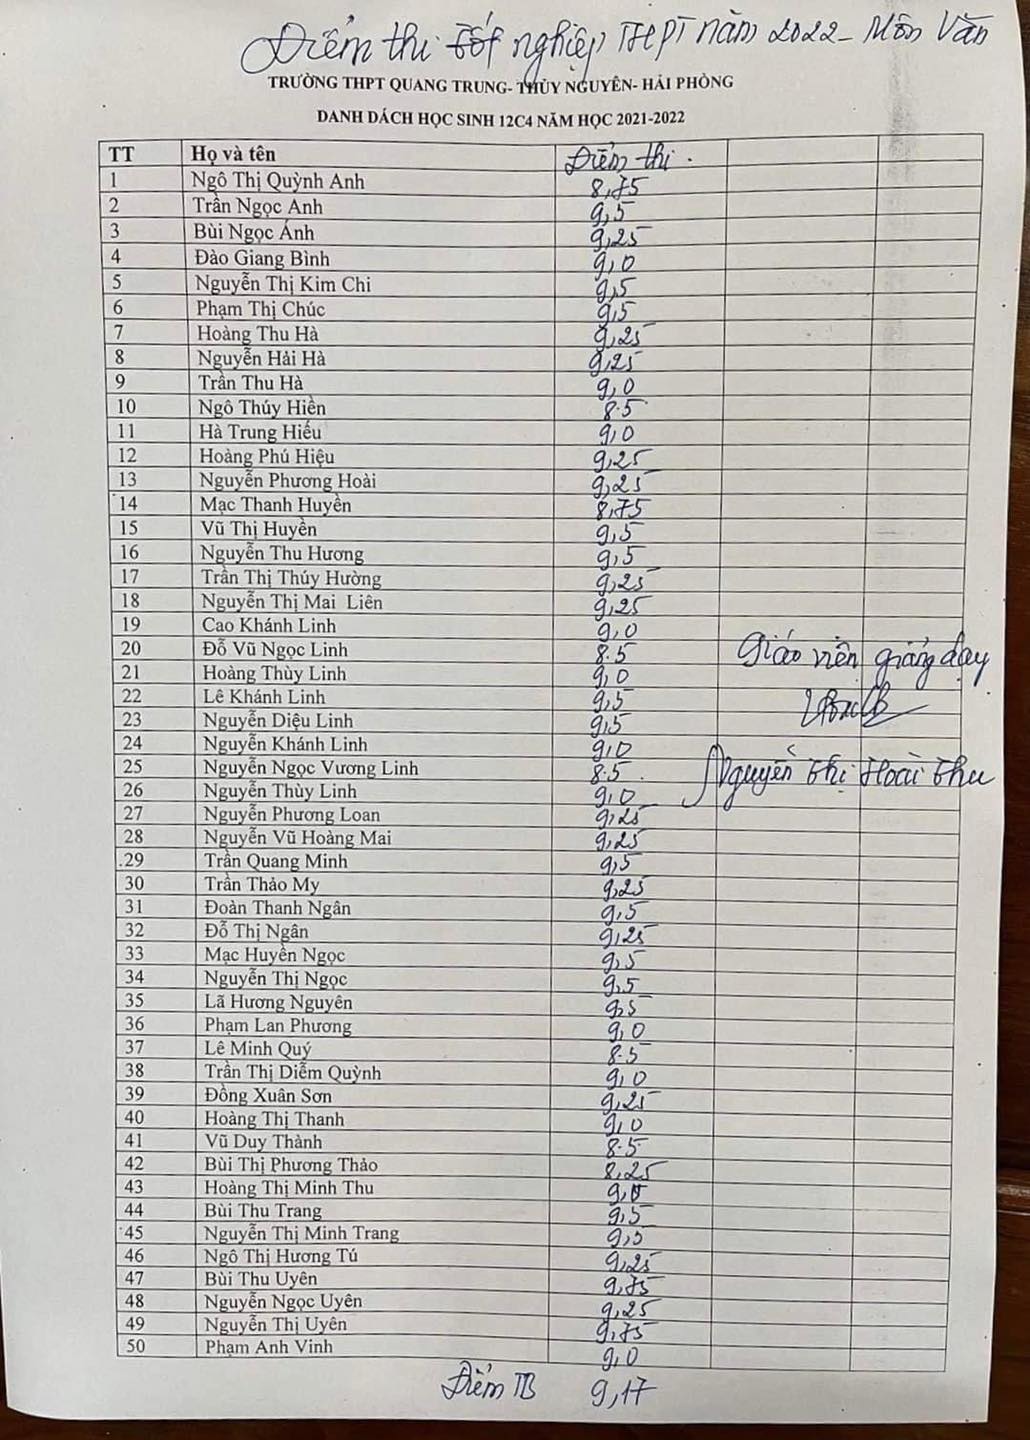 Điểm thi tốt nghiệp THPT năm 2022 - Môn Văn
TRƯỜNG THPT QUANG TRUNG- THỦY NGUYÊN- HẢI PHÒNG
DANH DÁCH HỌC SINH 12C4 NĂM HỌC 2021-2022
TT Họ và tên Điểm thi.
1 Ngô Thị Quỳnh Anh 8,75
2 Trần Ngọc Anh 9,5
3 Bùi Ngọc Ánh 9,25
4 Đào Giang Bình 9,0
5 Nguyễn Thị Kim Chi 9,5
6 Phạm Thị Chúc 9,5
7 Hoàng Thu Hà 9,25
8 Nguyễn Hải Hà 9,25
9 Trần Thu Hà 9,0
10 Ngô Thúy Hiền 8.5
11 Hà Trung Hiếu 9,0
12 Hoàng Phú Hiệu 9,25
13 Nguyễn Phương Hoài 9,25
14 Mạc Thanh Huyền 8,75
15 Vũ Thị Huyền 9,5
16 Nguyễn Thu Hương 9,5
17 Trần Thị Thúy Hường 9,25
18 Nguyễn Thị Mai Liên 9,25
19 Cao Khánh Linh 9,0
20 Đỗ Vũ Ngọc Linh 8.5 Giáo viên giảng dạy
21 Hoàng Thùy Linh 9,0
22 Lê Khánh Linh 9,5
23 Nguyễn Diệu Linh 9,5
24 Nguyễn Khánh Linh 9,0
25 Nguyễn Ngọc Vương Linh 8.5 Nguyễn Thị Hoài Thu
26 Nguyễn Thùy Linh 9,0
27 Nguyễn Phương Loan 9,25
28 Nguyễn Vũ Hoàng Mai 9,25
29 Trần Quang Minh 9,5
30 Trần Thảo My 9,25
31 Đoàn Thanh Ngân 9,5
32 Đỗ Thị Ngân 9,25
33 Mạc Huyền Ngọc 9,5
34 Nguyễn Thị Ngọc 9,5
35 Lã Hương Nguyên 9,5
36 Phạm Lan Phương 9,0
37 Lê Minh Quý 8.5
38 Trần Thị Diễm Quỳnh 9,0
39 Đồng Xuân Sơn 9,25
40 Hoàng Thị Thanh 9,0
41 Vũ Duy Thành 8.5
42 Bùi Thị Phương Thảo 8,25
43 Hoàng Thị Minh Thu 9,0
44 Bùi Thu Trang 9,5
45 Nguyễn Thị Minh Trang 9,5
46 Ngô Thị Hương Tú 9,25
47 Bùi Thu Uyên 9,75
48 Nguyễn Ngọc Uyên 9,25
49 Nguyễn Thị Uyên 9,75
50 Phạm Anh Vinh 9,0
Điểm TB 9,17